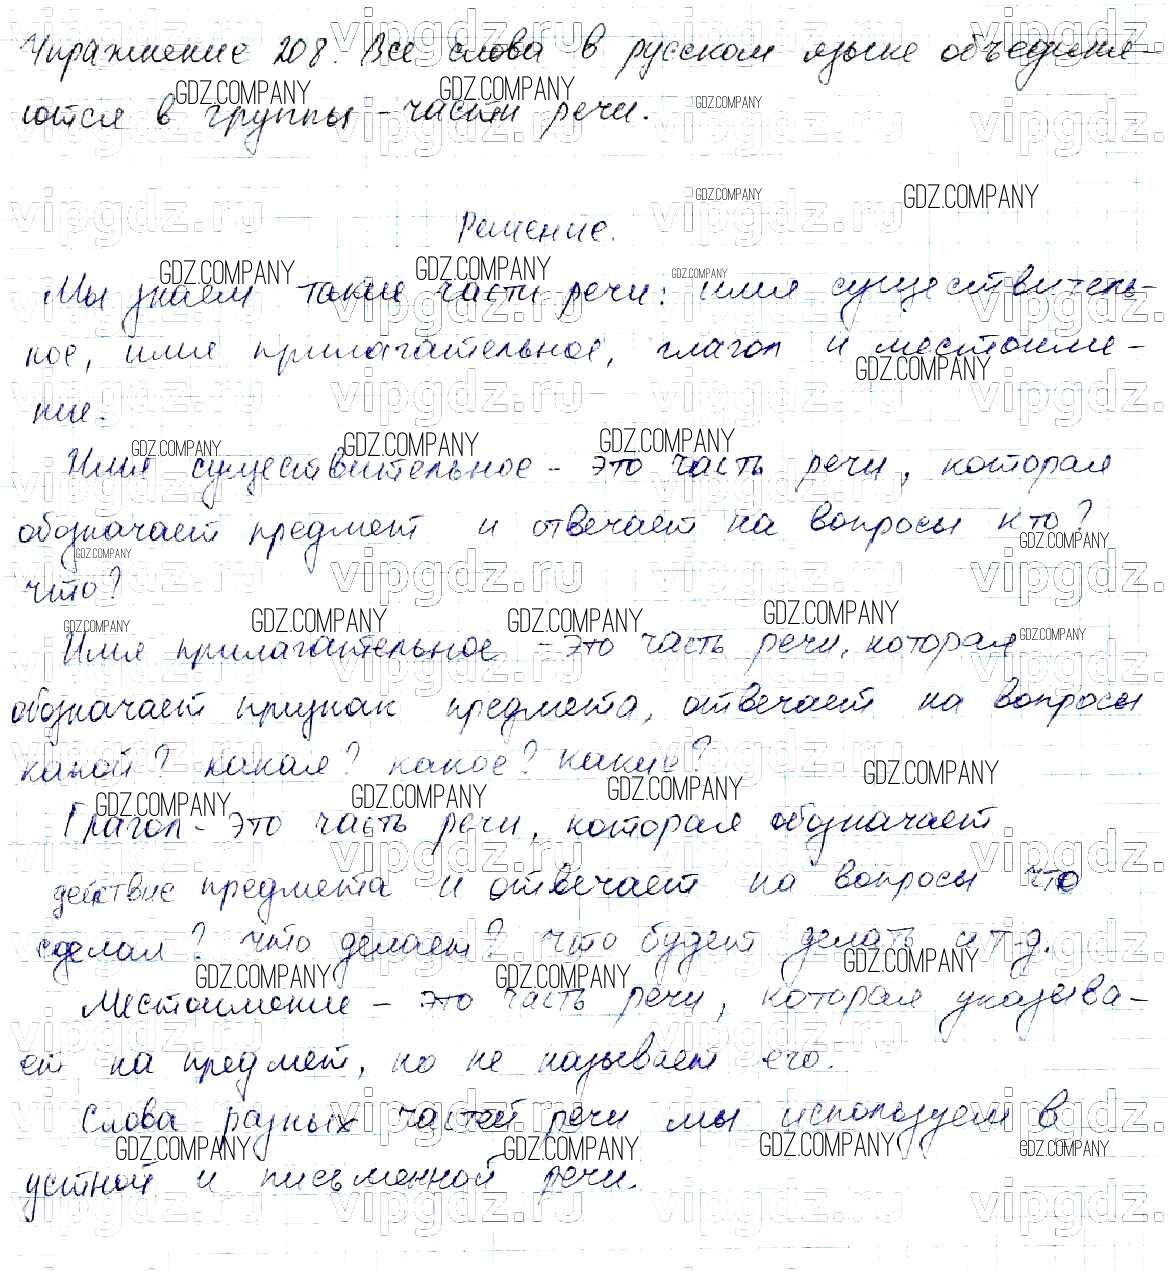 Упражнение 208. Все слова в русском языке объединя-
ются в группы - части речи.
Решение.
Мы знаем такие части речи: имя существитель-
ное, имя прилагательное, глагол и местоиме-
ние.
Имя существительное - это часть речи, которая
обозначает предмет и отвечает на вопросы кто?
что?
Имя прилагательное - это часть речи, которая
обозначает признак предмета, отвечает на вопросы
какой? какая? какое? какие?
Глагол - это часть речи, которая обозначает
действие предмета и отвечает на вопросы что
сделал? что делает? что будет делать и т.д.
Местоимение - это часть речи, которая указыва-
ет на предмет, но не называет его.
Слова разных частей речи мы используем в
устной и письменной речи.
vipgdz.ru
GDZ.COMPANY